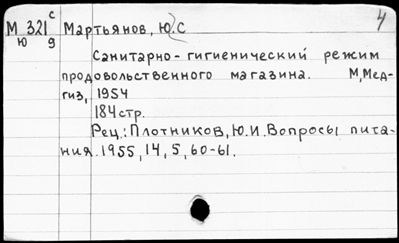 М 321 с Мартьянов, Ю.С 4
ю 9
Санитарно-гигиенический режим
продовольственного магазина. М, Мед-
гиз, 1954
184 стр.
Рец.: Плотников, Ю.И. Вопросы пита-
ния. 1955, 14, 5, 60-61.